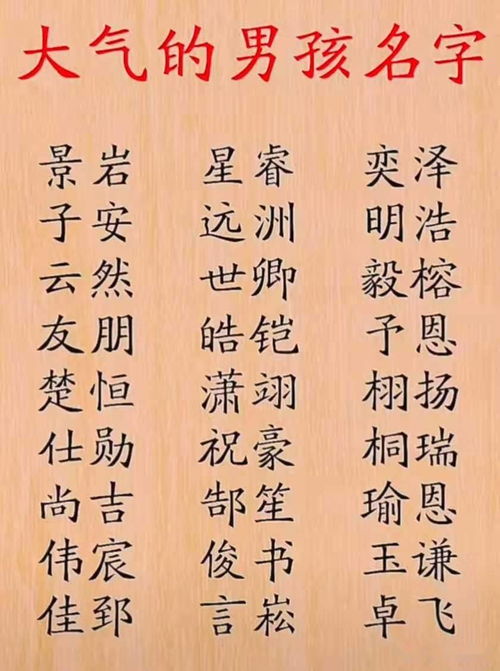 大气的男孩名字
景岩 星睿 奕泽
子安 远洲 明浩
云然 世卿 毅榕
友朋 皓铠 予恩
楚恒 潇翊 栩扬
仕勋 祝豪 桐瑞
尚吉 郜笙 瑜恩
伟宸 俊书 玉谦
佳郅 言崧 卓飞